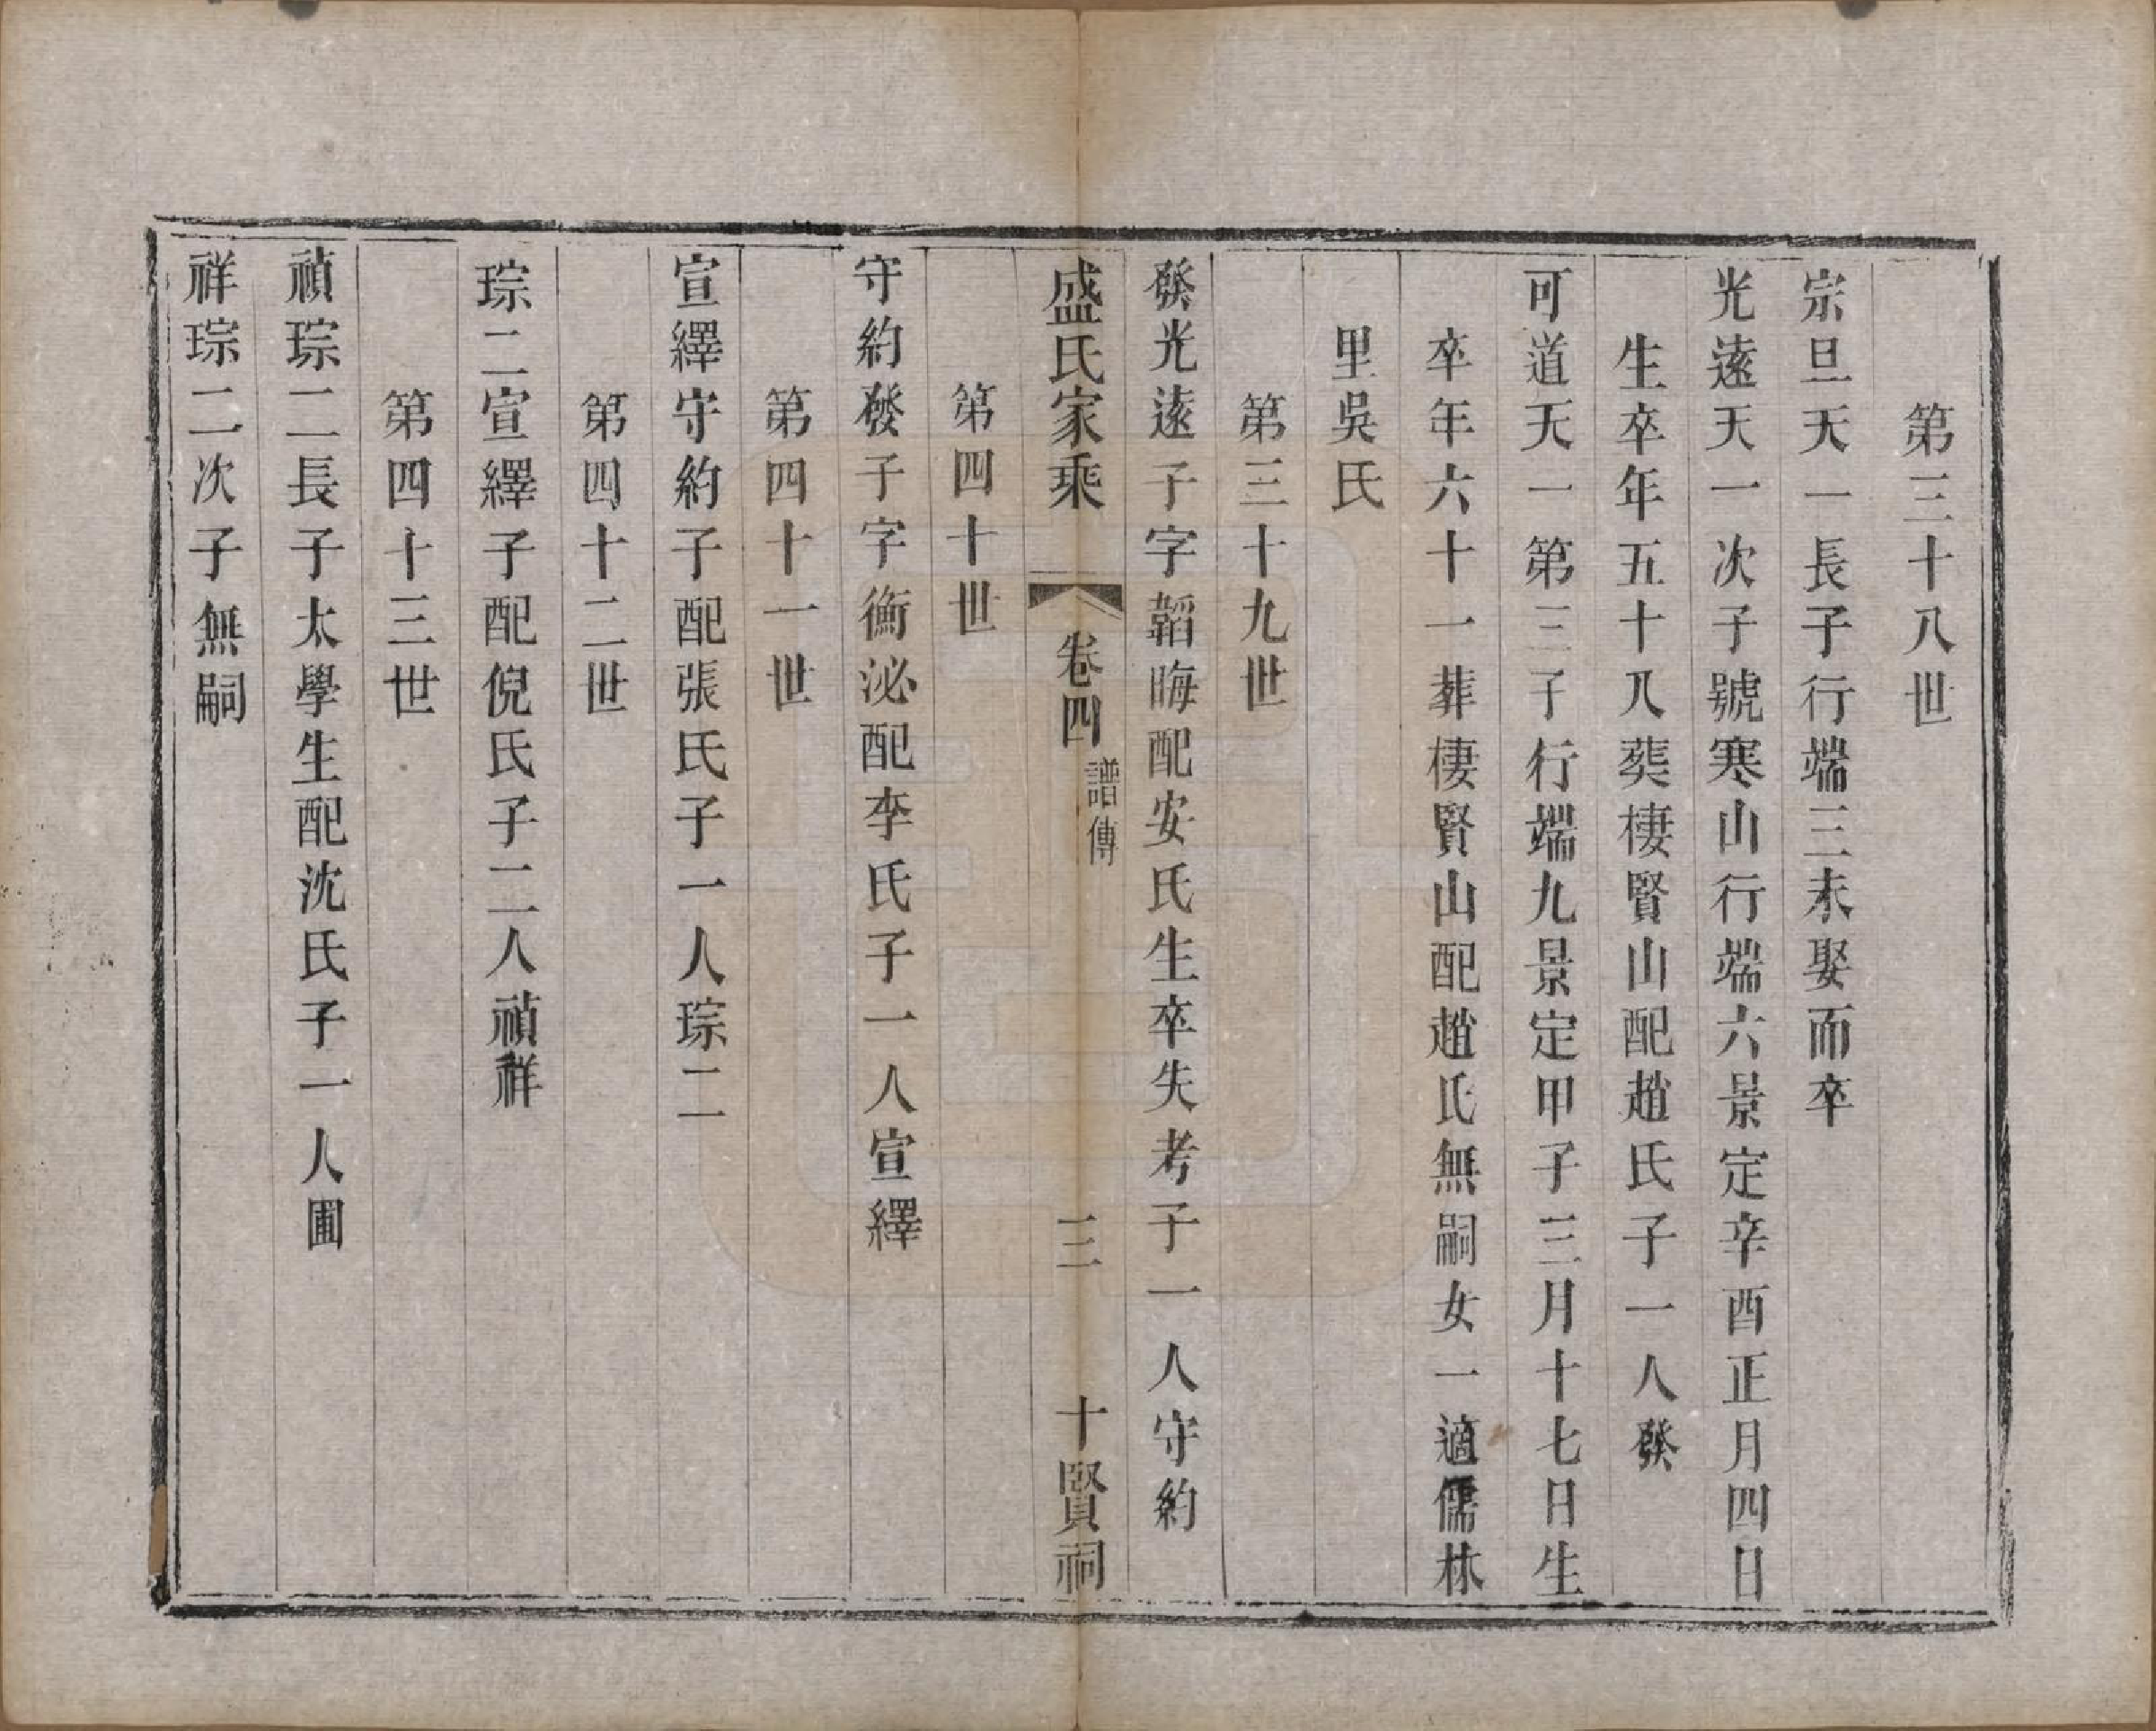 第三十八世
宗旦天一長子行端三未娶而卒
光遠天一次子號寒山行端六景定辛酉正月四日
生卒年五十八葬棲賢山配趙氏子一人發
可道天一第三子行端九景定甲子三月十七日生
卒年六十一葬棲賢山配趙氏無嗣女一適儒林
里吳氏
第三十九世
發光遠子字韜晦配安氏生卒失考子一人守約
盛氏家乘 卷四 譜傳 三 十賢祠
第四十世
守約發子字衡泌配李氏子一人宣繹
第四十一世
宣繹守約子配張氏子一人琮二
第四十二世
琮二宣繹子配倪氏子二人禎祥
第四十三世
禎琮二長子太學生配沈氏子一人圃
祥琮二次子無嗣